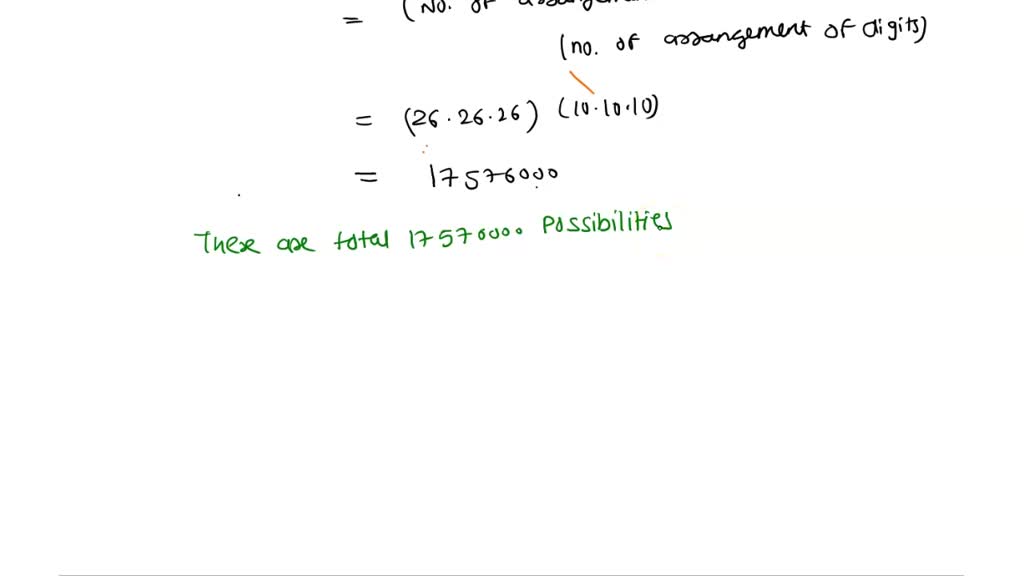 = (No. of
(no. of arrangement of digits)
= (26.26.26) (10.10.10)
= 17576000
There are total 17576000 possibilities